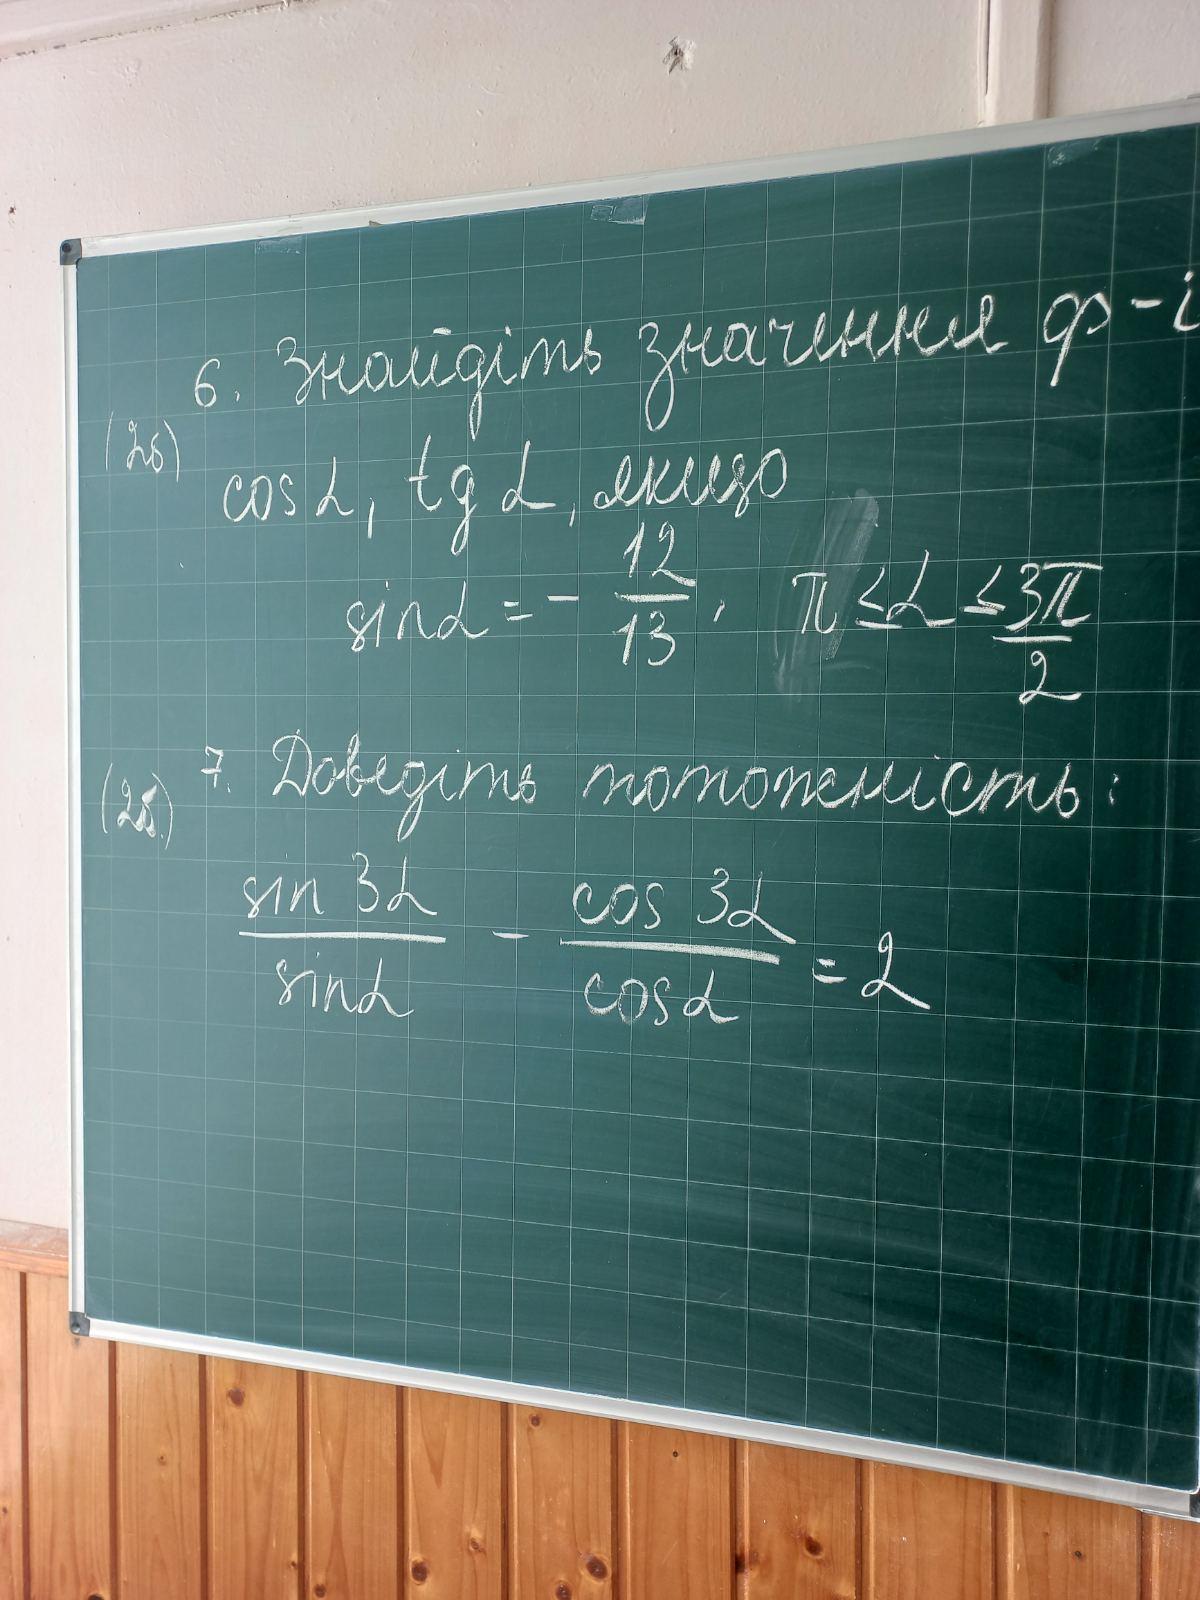 6. Знайдіть значення ф-і
(2б)
cos α, tg α, якщо
sin α = - 12/13, π ≤ α ≤ 3π/2
7. Доведіть тотожність:
(2б.)
sin 3α/sin α - cos 3α/cos α = 2